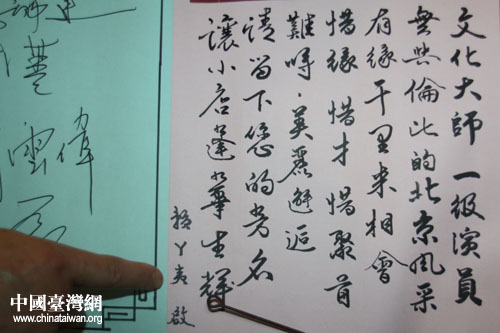 文化大師一級演員
無與倫比的北京風采
有緣千里来相會
惜緣惜才惜聚首
難得·美麗邂逅
請留下您的芳名
讓小店蓬蓽生輝
丫 啟
偉
雲
中國臺灣網
www.chinataiwan.org